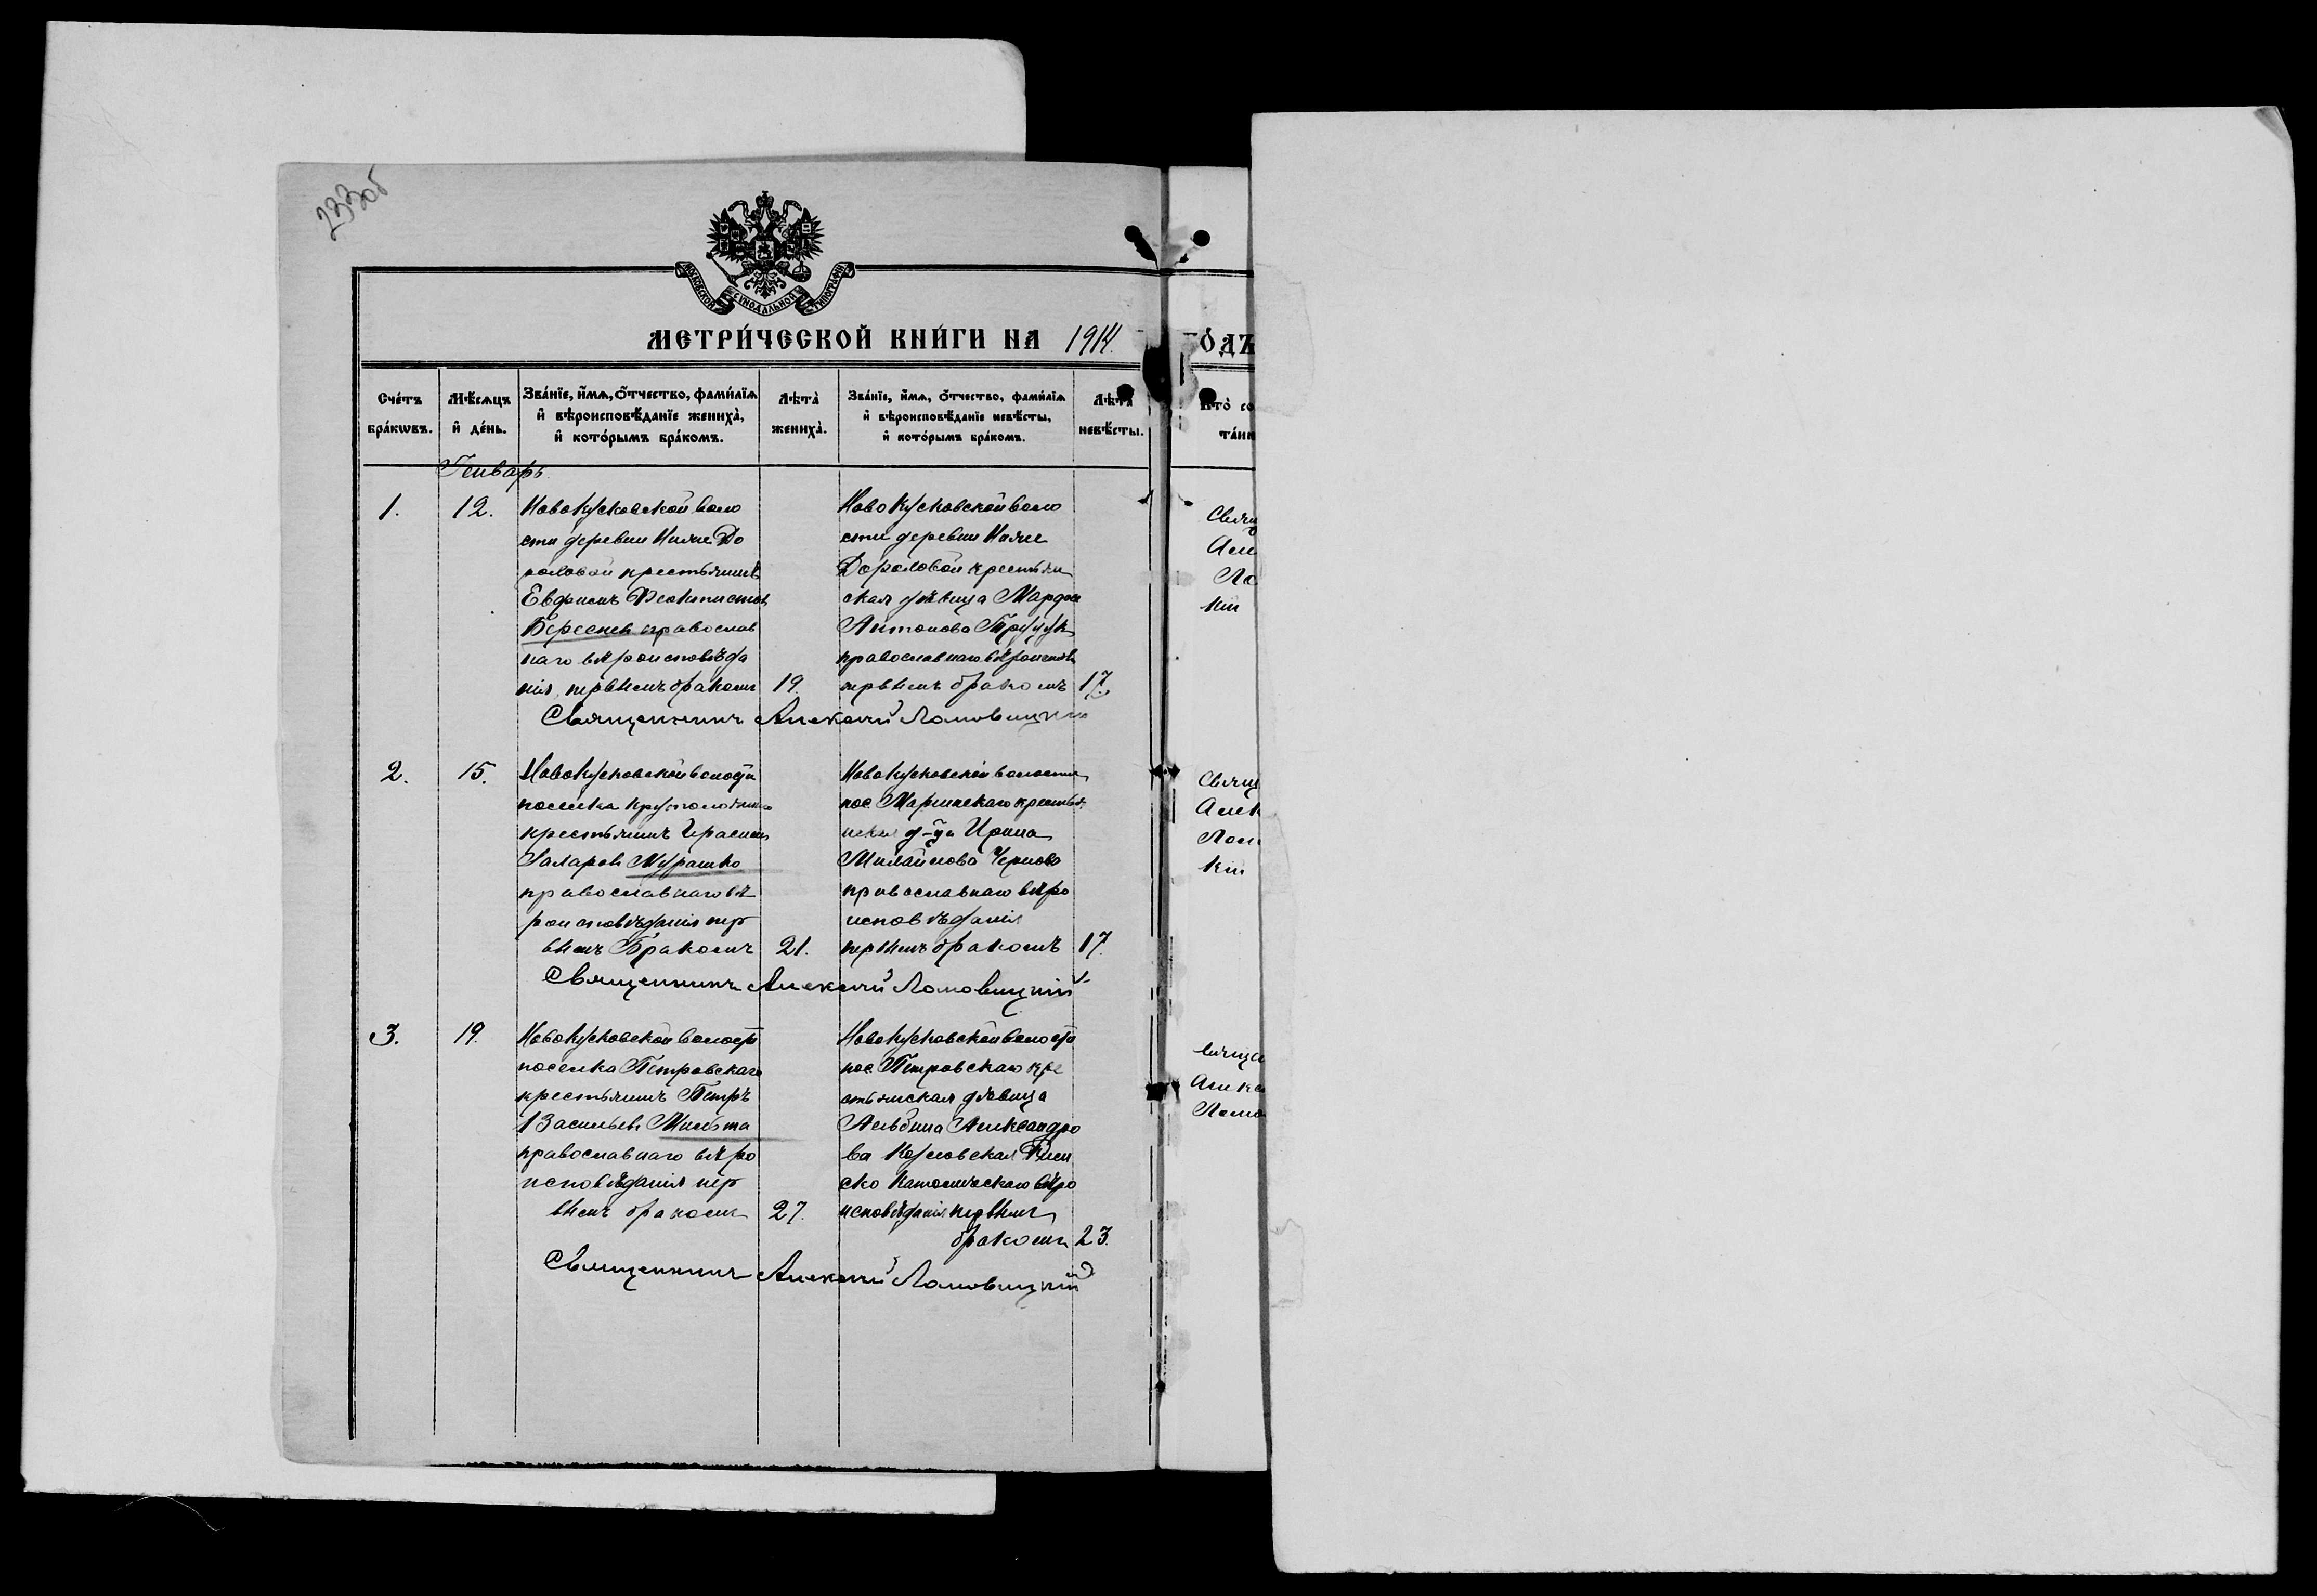 233об
МОСКОВСКОЙ СѴНОДАЛЬНОЙ ТИПОГРАФІИ
МЕТРИ́ЧЕСКОЙ КНИ́ГИ НА 1914. ГО́ДЪ
Сче́тъ бра́кѡвъ.
Мѣ́сяцъ и де́нь.
Зва́нїе, и́мя, ѻ́тчество, фами́лїя
и вѣроисповѣ́данїе жениха̀,
и кото́рымъ бра́комъ.
Лѣта̀ жениха̀.
Зва́нїе, и́мя, ѻ́тчество, фами́лїя
и вѣроисповѣ́данїе невѣ́сты,
и кото́рымъ бра́комъ.
Лѣта̀ невѣ́сты.
Кто̀ со
та́ин
Генварь.
1. 12.
Новокусковской воло
сти деревни Ниже До
роховой крестьянинъ
Евфимъ Феоктистов
Береснев православ
наго вѣроисповѣда
нія, первымъ бракомъ 19.
Ново Кусковской воло
сти деревни Ниже
Дороховой крестьян
ская дѣвица Марфа
Антонова
православнаго вѣроисповѣ
первымъ бракомъ 17.
Священникъ Алексій Ломовицкій
2. 15.
Новокусковской волости
поселка
крестьянинъ Герасим
Мурашко
православнаго вѣ
роисповѣданія пер
вымъ Бракомъ 21.
Новокусковской волости
пос. Маріинскаго крестья
нская д-ца Ирина
Михайлова Чернова
православнаго вѣро
исповѣданія
первымъ бракомъ 17.
Священникъ Алексій Ломовицкій
3. 19.
Новокусковской волости
поселка Петровскаго
крестьянинъ Петръ
Васильевъ
православнаго вѣро
исповѣданія пер
вымъ бракомъ 27.
Новокусковской волости
пос. Петровскаго кре
стьянская дѣвица
Альбина Александро
ва Козловская Рим
ско Католическаго вѣро
исповѣданія первымъ
бракомъ 23.
Священникъ Алексій Ломовицкій
Свящ
Але
Ло
кій
Свящ
Алек
Лом
кій
Алекс
Ломо